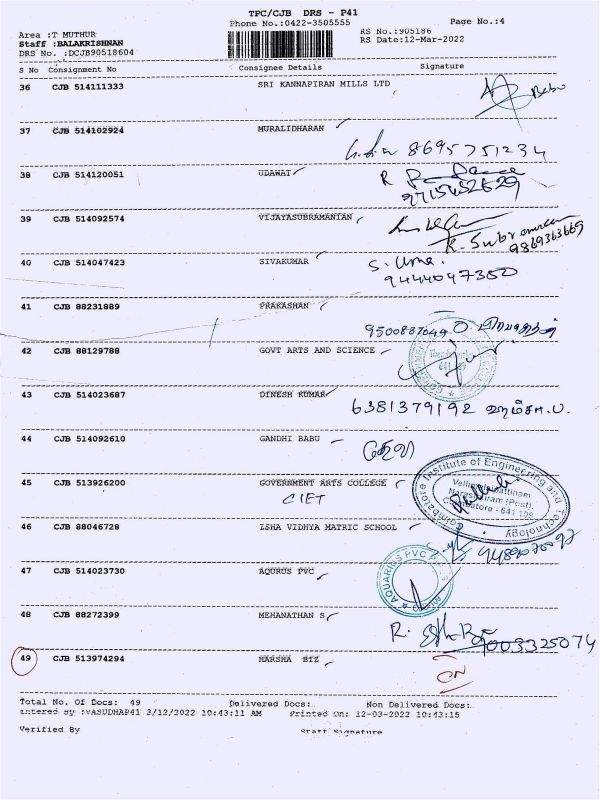 TPC/CJB DRS - P41
Phone No.:0422-3505555 Page No.:4
Area :T MUTHUR RS No.:905186
Staff :BALAKRISHNAN RS Date:12-Mar-2022
DRS No. :DCJB90518604
S No Consignment No Consignee Details Signature
36 CJB 514111333 SRI KANNAPIRAN MILLS LTD
Babu
37 CJB 514102924 MURALIDHARAN
8695751234
38 CJB 514120051 UDAWAT
39 CJB 514092574 VIJAYASUBRAMANIAN
K. Subramanian
9869363669
40 CJB 514047423 SIVAKUMAR S. Uma.
9444047380
41 CJB 88231889 PRAKASHAN
42 CJB 88129788 GOVT ARTS AND SCIENCE
43 CJB 514023687 DINESH KUMAR
6381379192
44 CJB 514092610 GANDHI BABU
45 CJB 513926200 GOVERNMENT ARTS COLLEGE
CIET
Coimbatore Institute of Engineering and Technology
Vellimalaipattinam
Narasipuram (Post),
Coimbatore - 641 109
46 CJB 88046728 LSHA VIDHYA MATRIC SCHOOL
47 CJB 514023730 AQURUS PVC
AQUARIUS PVC
48 CJB 88272399 MEHANATHAN S
9003325074
49 CJB 513974294 HARSHA BTZ
Total No. Of Docs: 49 Delivered Docs: Non Delivered Docs:
Entered By :VASUDHAP41 3/12/2022 10:43:11 AM Printed On: 12-03-2022 10:43:15
Verified By Staff Signature